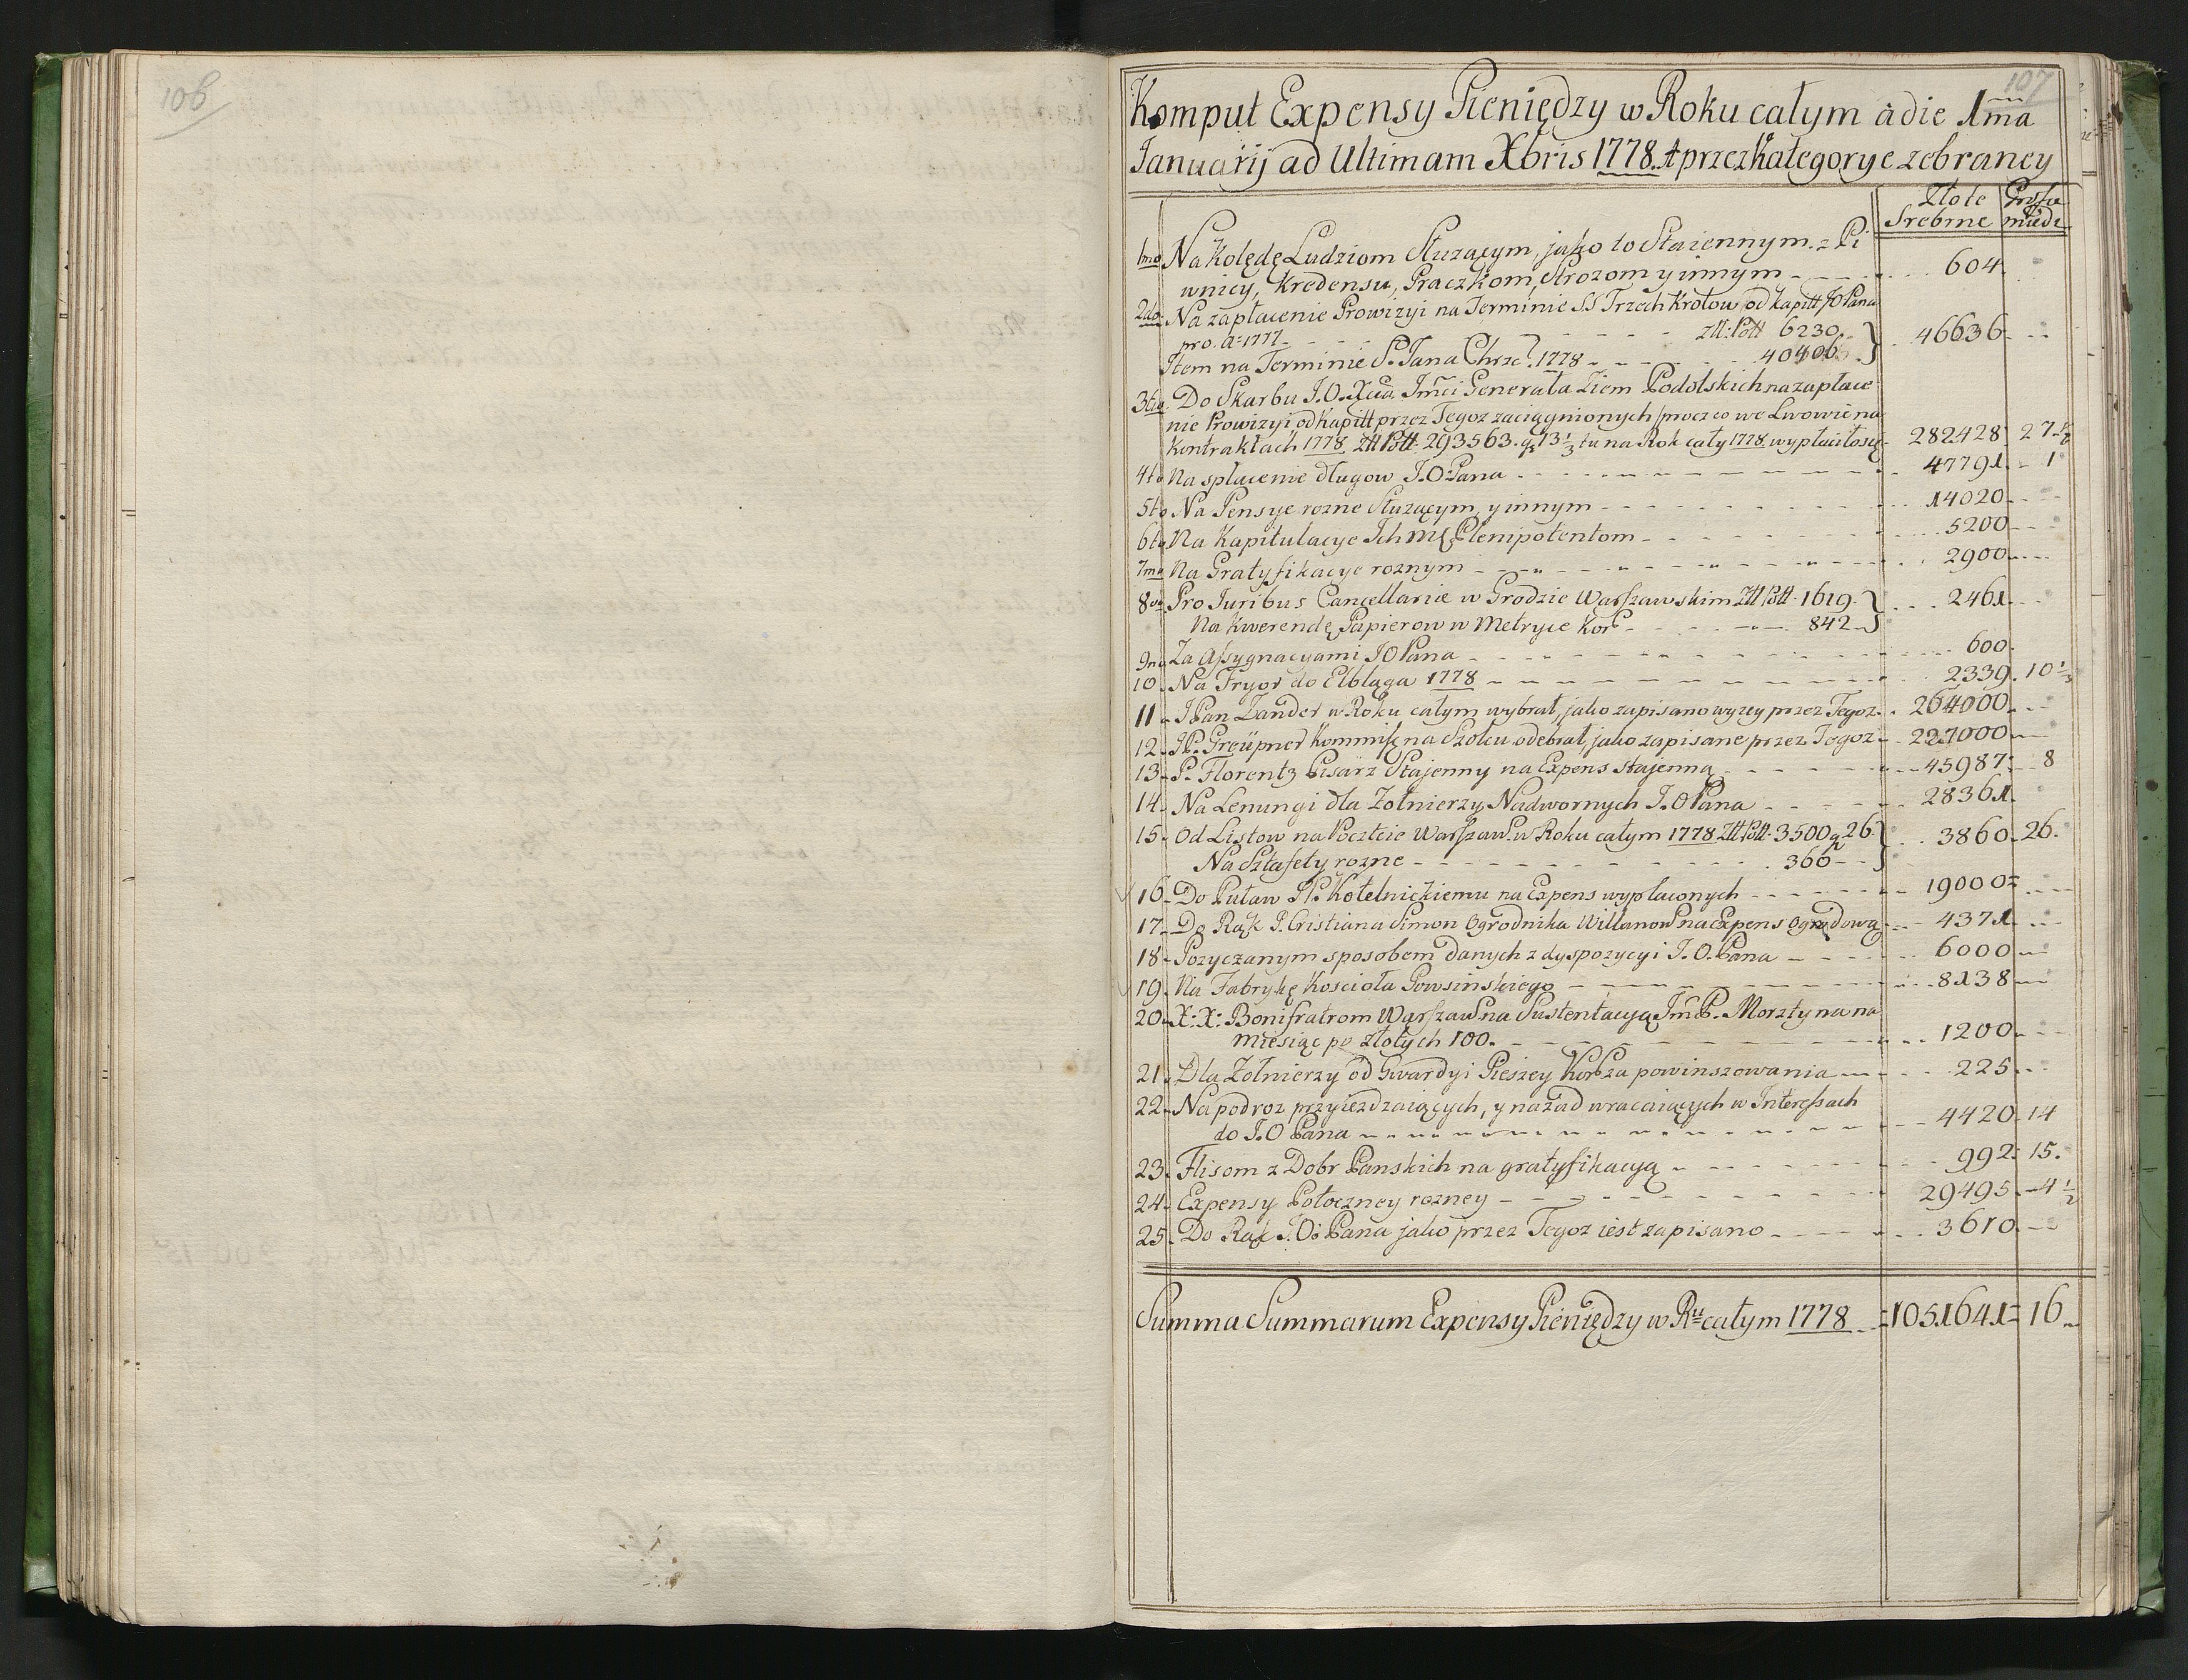 106
107
Komput Expensy Pieniędzy w Roku całym à die 1ma
Januarij ad Ultimam Xbris 1778. przez Kategorye zebraney
Złote Grosze
Srebrne miedz
1mo Na Kolędę Ludziom Służącym, jako to Staiennym. z Pi
wnicy, Kredensu, Praczkom, Strozom y innym - 604
2do Na zapłacenie Prowizyi na Terminie SS Trzech Krolow od kapitt JOPana
pro. A= 1777. - - - Zll: Poll 6230. } 46636
Item na Terminie S. Jana Chrzc. 1778 - - 40406.
3tio Do Skarbu J.O.Xcia Jmci Generała Ziem Podolskich na zapłace
nie Prowizyi od Kapitt przez Tegoz zaciągnionych /procz co we Lwowie na
Kontraktach 1778 Zll Poll. 293563. gr 13 1/3 tu na Rok cały 1778 wypłaciło się 282428 27 1/2
4to Na spłacenie długow J.O.Pana - 47791 - 1
5to Na Pensye rozne Służącym, y innym - 14020
6to Na Kapitulacye Ich Mć Plenipotentom - 5200
7mo Na Gratyfikacye roznym - 2900
8vo Pro Juribus Cancellariæ w Grodzie Warszawskim Zll Poll. 1619. } 2461
Na Kwerendę Papierow w Metryce Kor. - 842
9no Za Assygnacyami JO Pana - 600
10. Na Fryor do Elbląga 1778 - 2339. 10 1/3
11. JPan Zander w Roku całym wybrał, jako zapisano wyzey przez Tegoz. 264000
12. JP. Greüpner Kommiss na Szolcu odebrał, jako zapisane przez Tegoz 227000
13. P. Florentz Pisarz Stajenny na Expens stajenną - 45987. 8
14. Na Lenungi dla Zołnierzy Nadwornych J.O Pana - 28361.
15. Od Listow na Poczcie Warszaw. w Roku całym 1778 Zll Poll. 3500 gr 26 } 3860. 26.
Na Sztafety rozne - 360
16. Do Puław JP. Kotelnickiemu na Expens wypłaconych - 19000
17. Do Rąk P. Cristiana Simon Ogrodnika Willanow na Expens Ogrodową 4371
18. Pozyczanym sposobem danych z dyspozycyi J.O.Pana - 6000
19. Na Fabrykę Kościoła Powsinskiego - 8138
20. X: X: Bonifratrom Warszaw na Sustentacyą Jm P. Morztyna na
miesiąc po złotych 100. - 1200
21. Dla Zołnierzy od Gwardyi Pieszey Kor za powinszowania - 225
22. Na podroz przyiezdzaiących, y nazad wracaiących w Interessach
do J.O Pana - 4420. 14
23. Flisom z Dobr Panskich na gratyfikacyą - 992: 15.
24. Expensy Potoczney rozney - 29495. 4 1/2
25. Do Rąk J.O: Pana jako przez Tegoz iest zapisano - 3610
Summa Summarum Expensy Pieniędzy w Ru całym 1778 = 1051641 = 16